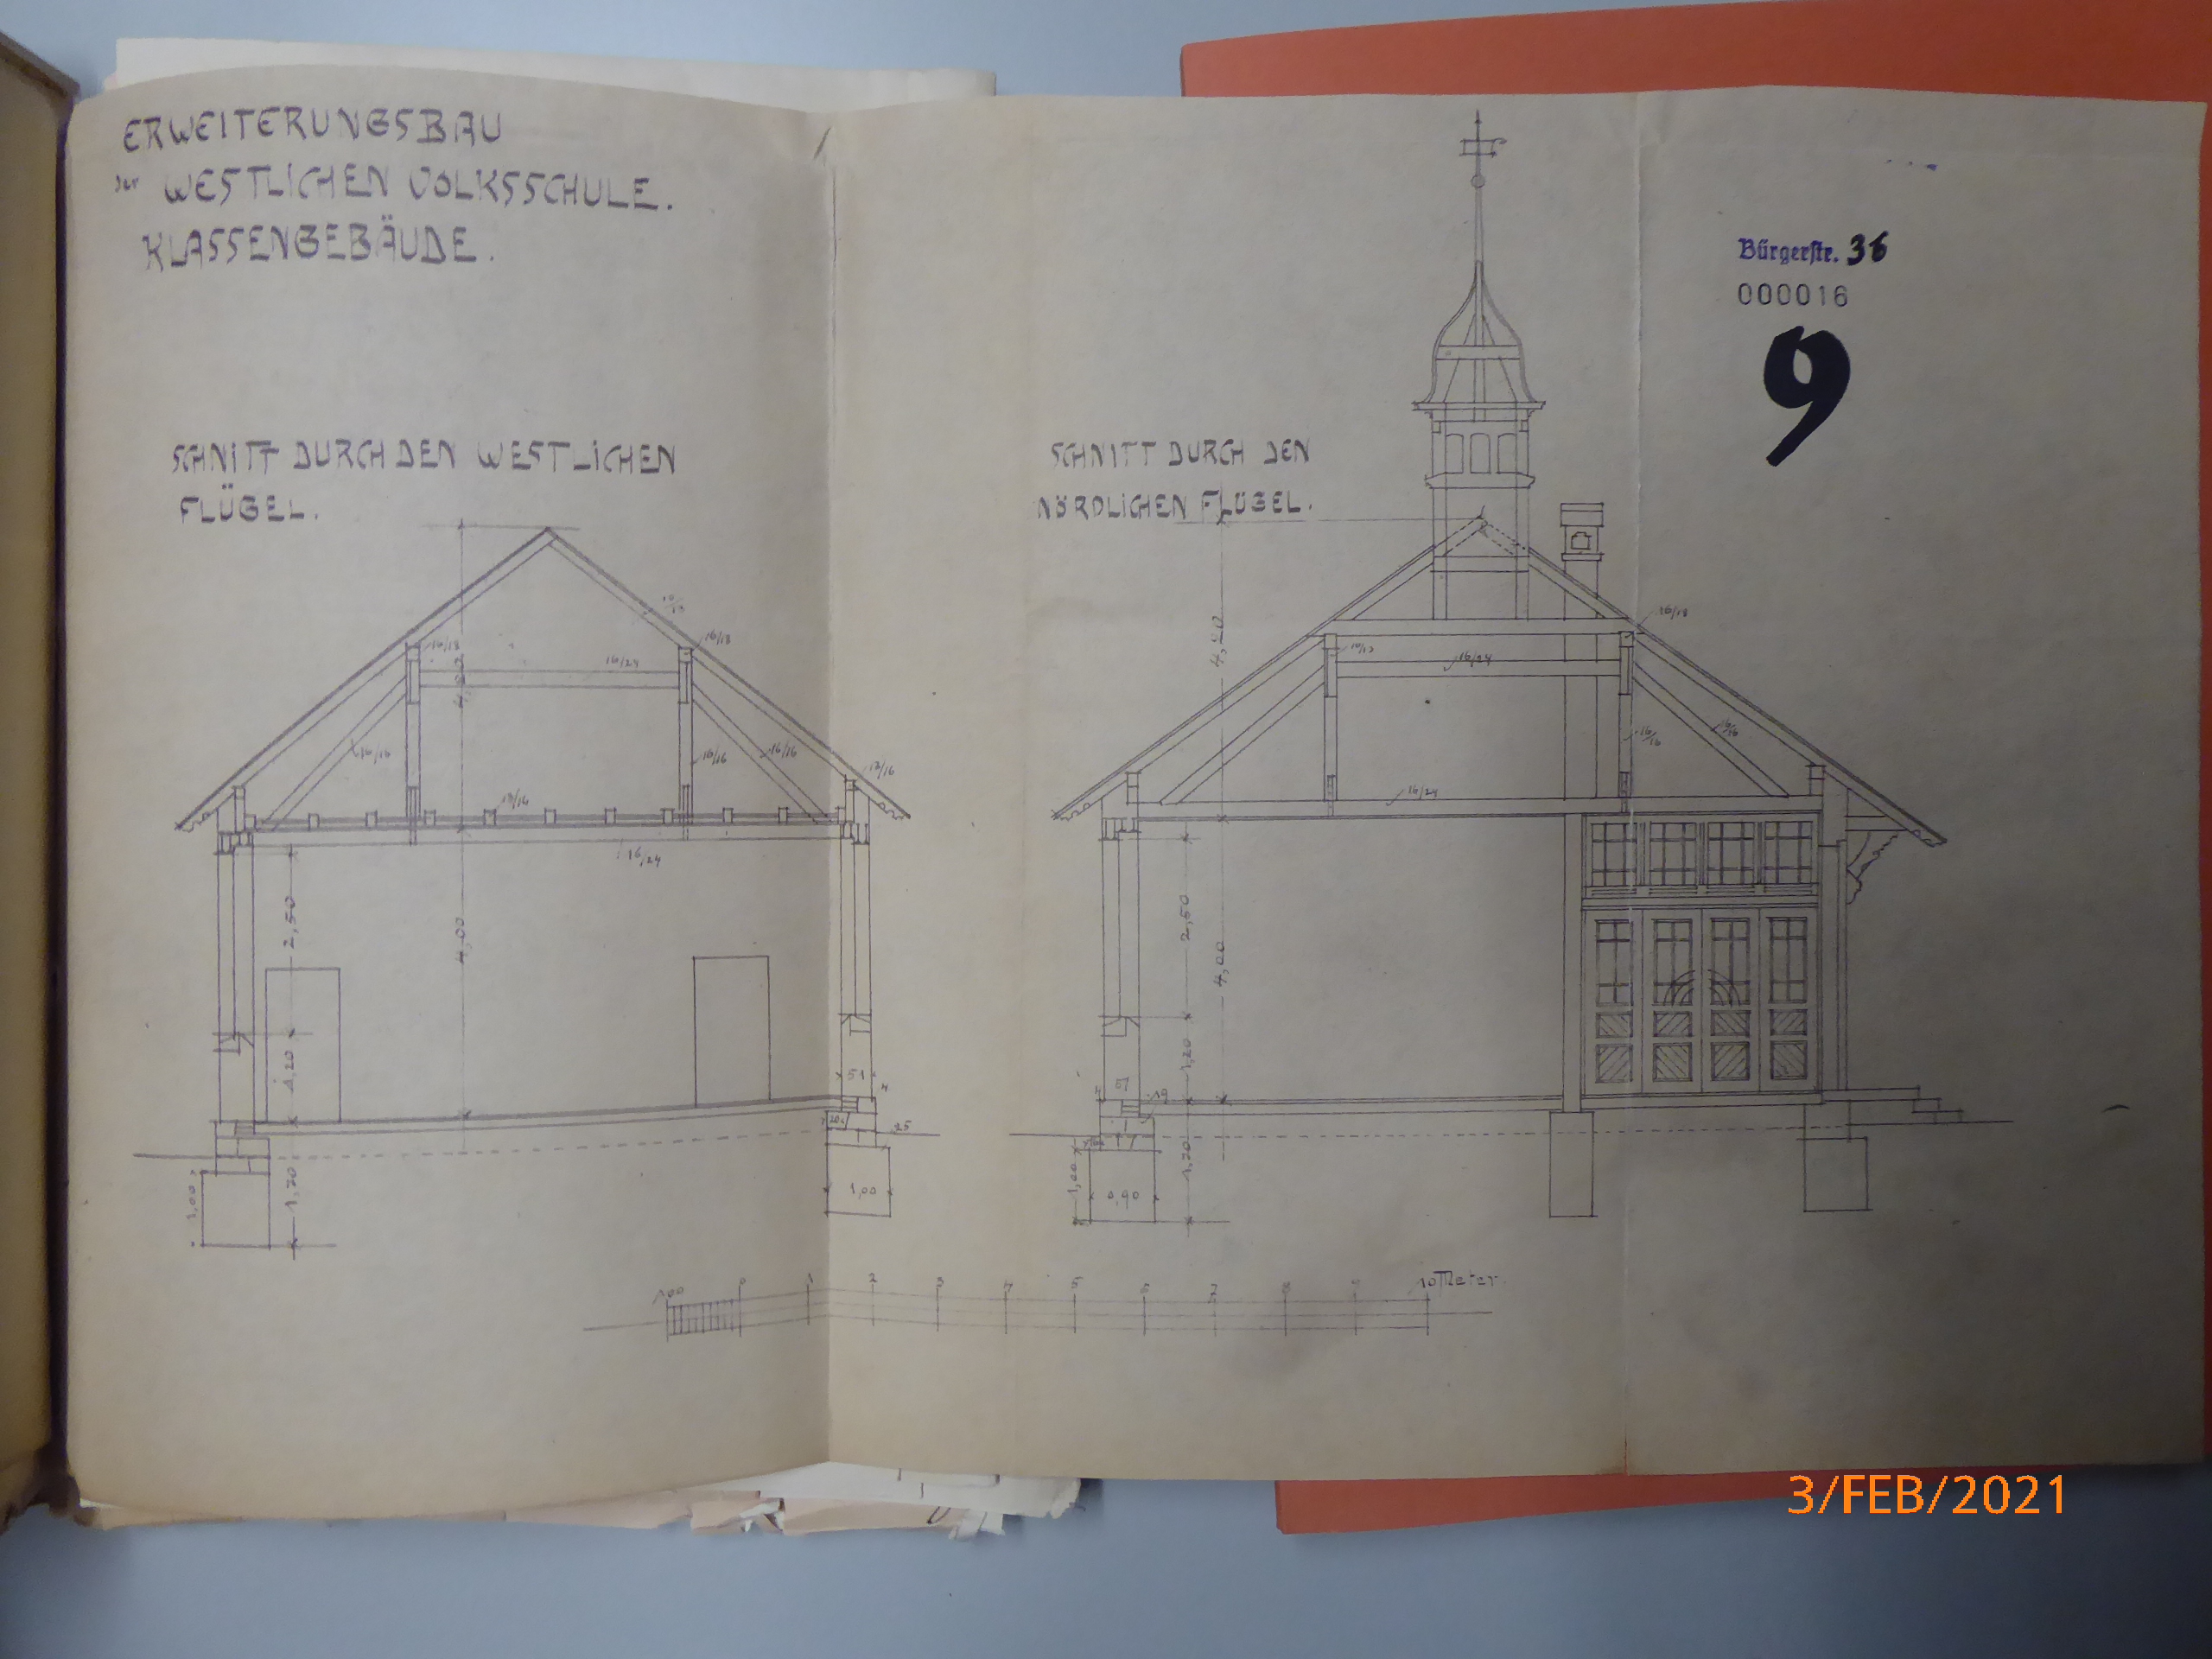 ERWEITERUNGSBAU
der WESTLICHEN VOLKSSCHULE.
KLASSENGEBÄUDE.
Bürgerstr. 36
000016
9
SCHNITT DURCH DEN WESTLICHEN
FLÜGEL.
SCHNITT DURCH DEN
NÖRDLICHEN FLÜGEL.
16/18
16/18
16/24
16/16
16/16
16/16
13/16
16/24
2,50
4,00
1,20
51
25
1,00
1,70
1,00
4,20
16/18
16/24
16/16
16/16
16/24
2,50
4,00
1,20
51
1,00
0,90
1,70
100 0 1 2 3 4 5 6 7 8 9 10 Meter.
3/FEB/2021